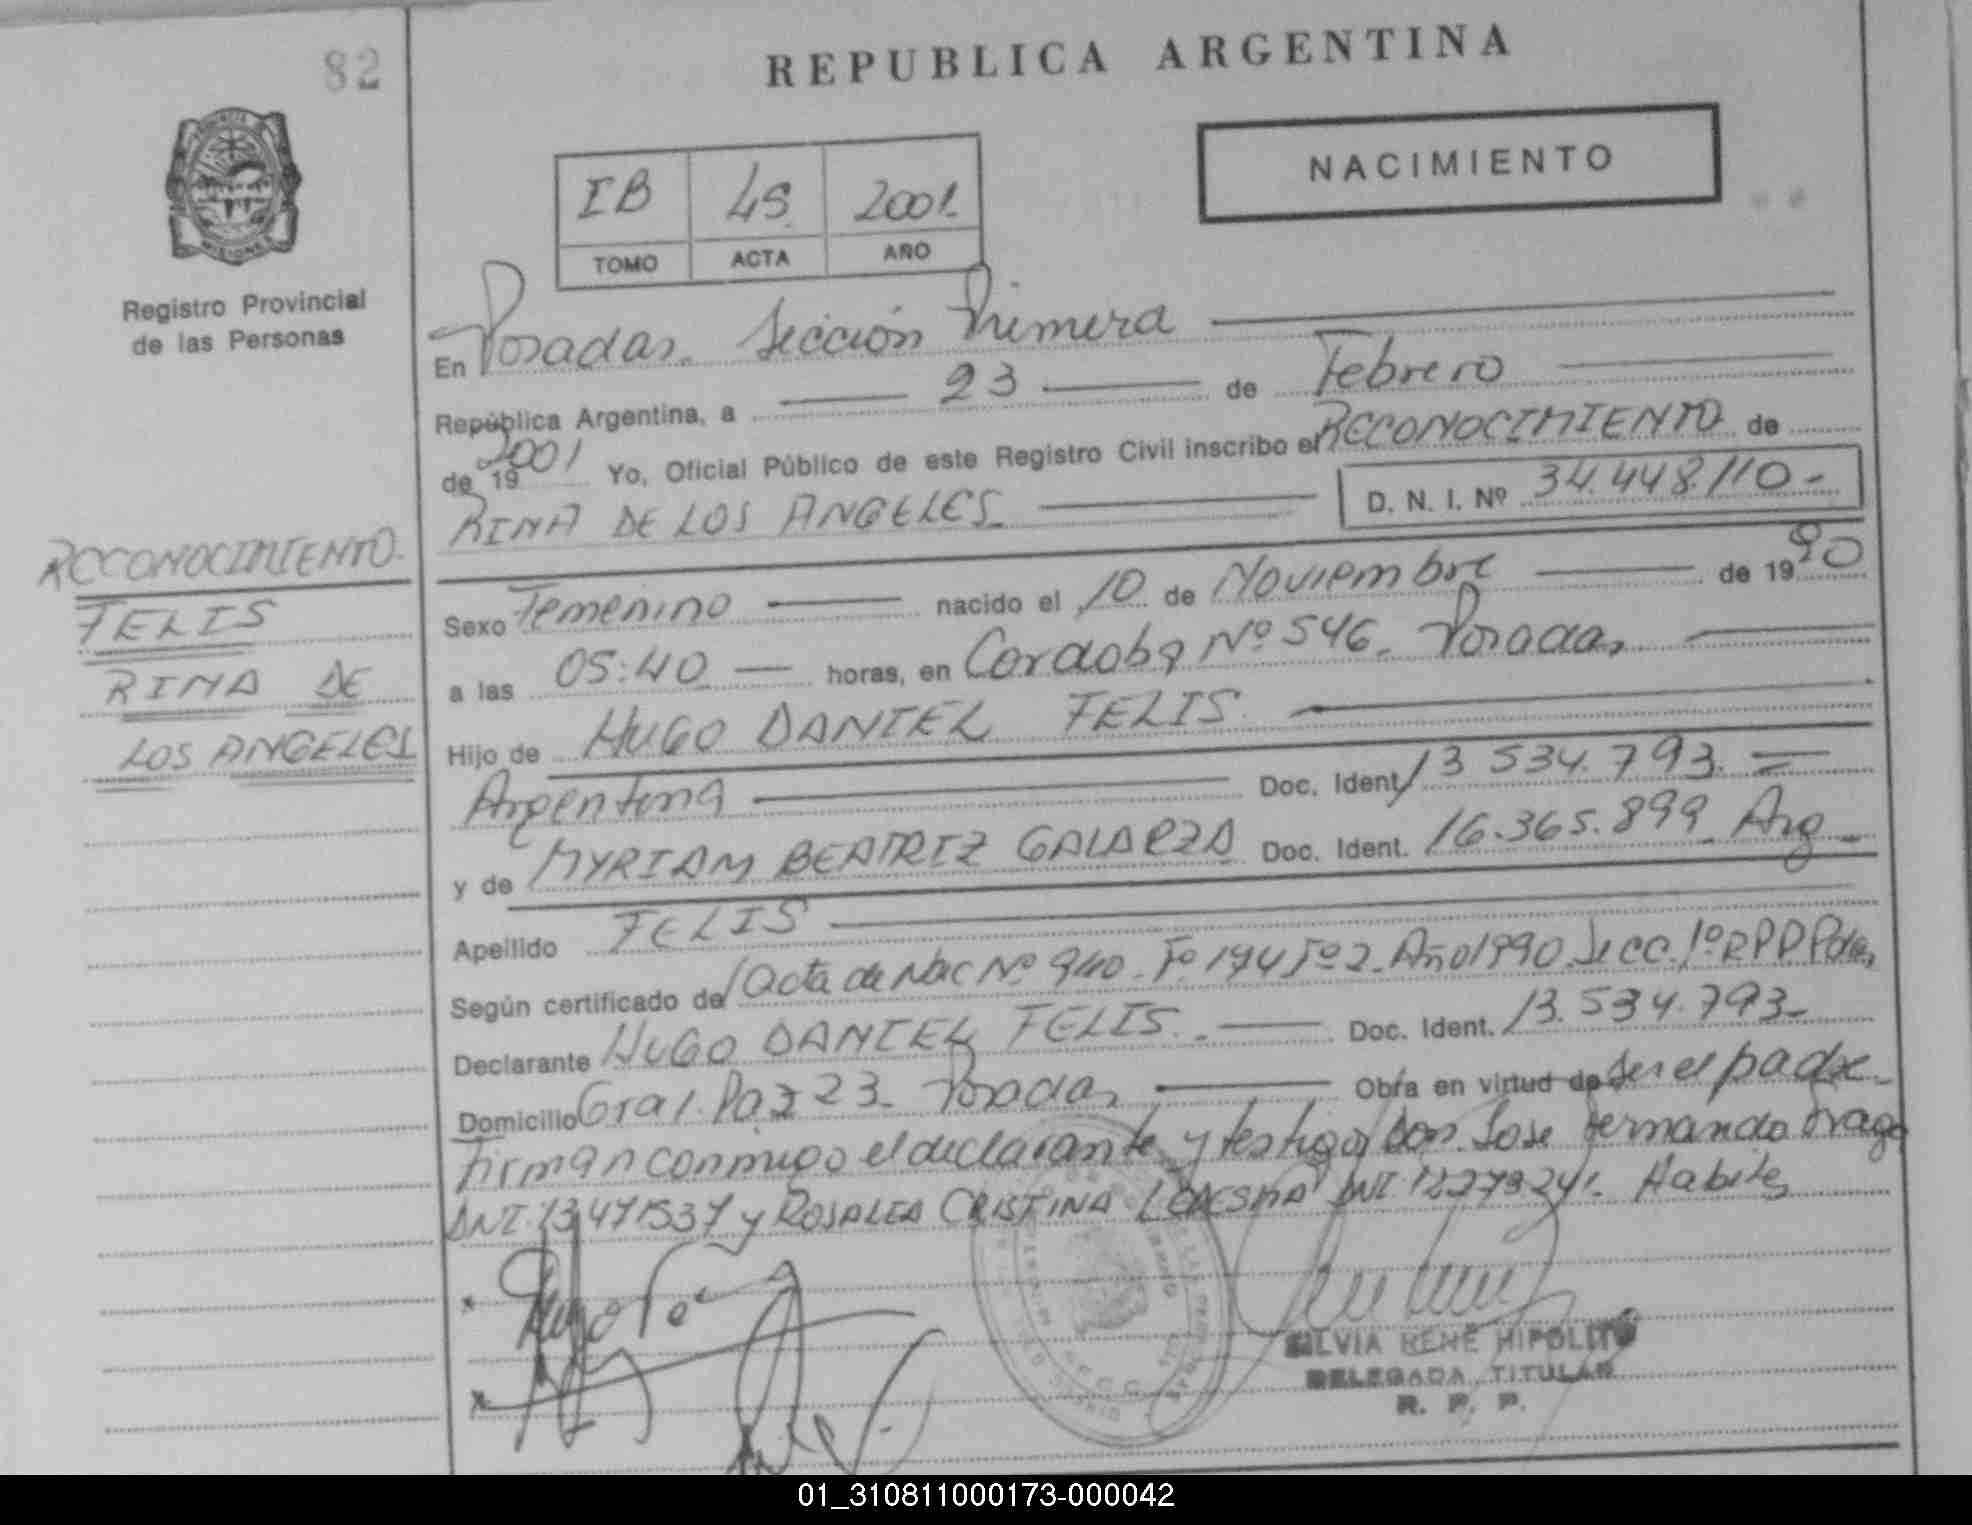 82
REPUBLICA ARGENTINA
NACIMIENTO
IB 45 2001.
TOMO ACTA AÑO
PROVINCIA DE
MISIONES
Registro Provincial
de las Personas
En Posadas. Sección Primera
República Argentina, a 23 de Febrero
de 19 2001 Yo, Oficial Público de este Registro Civil inscribo el RECONOCIMIENTO de
RINA DE LOS ANGELES D. N. I. Nº 34.448.110.-
RECONOCIMIENTO.
FELIS
RINA DE
LOS ANGELES
Sexo Femenino nacido el 10 de Noviembre de 1990
a las 05:40 horas, en Cordoba Nº 546. Posadas
Hijo de HUGO DANIEL FELIS.
Argentina Doc. Ident. 13.534.793.
y de MYRIAM BEATRIZ GALARZA Doc. Ident. 16.365.899 Arg
Apellido FELIS
Según certificado de Acta de Nac Nº 940. Fº 194 Tº 2. Año 1990. Secc. 1º R P P Pdas,
Declarante HUGO DANIEL FELIS. Doc. Ident. 13.534.793-
Domicilio Gral. Paz 23. Posadas Obra en virtud de ser el padre.
Firman conmigo el declarante y testigos con Jose Fernando
DNI. 13471537 y ROSALIA CRISTINA LEDESMA DNI. 12279241. Habiles
SILVIA RENE HIPOLITO
DELEGADA TITULAR
R. P. P.
01_310811000173-000042